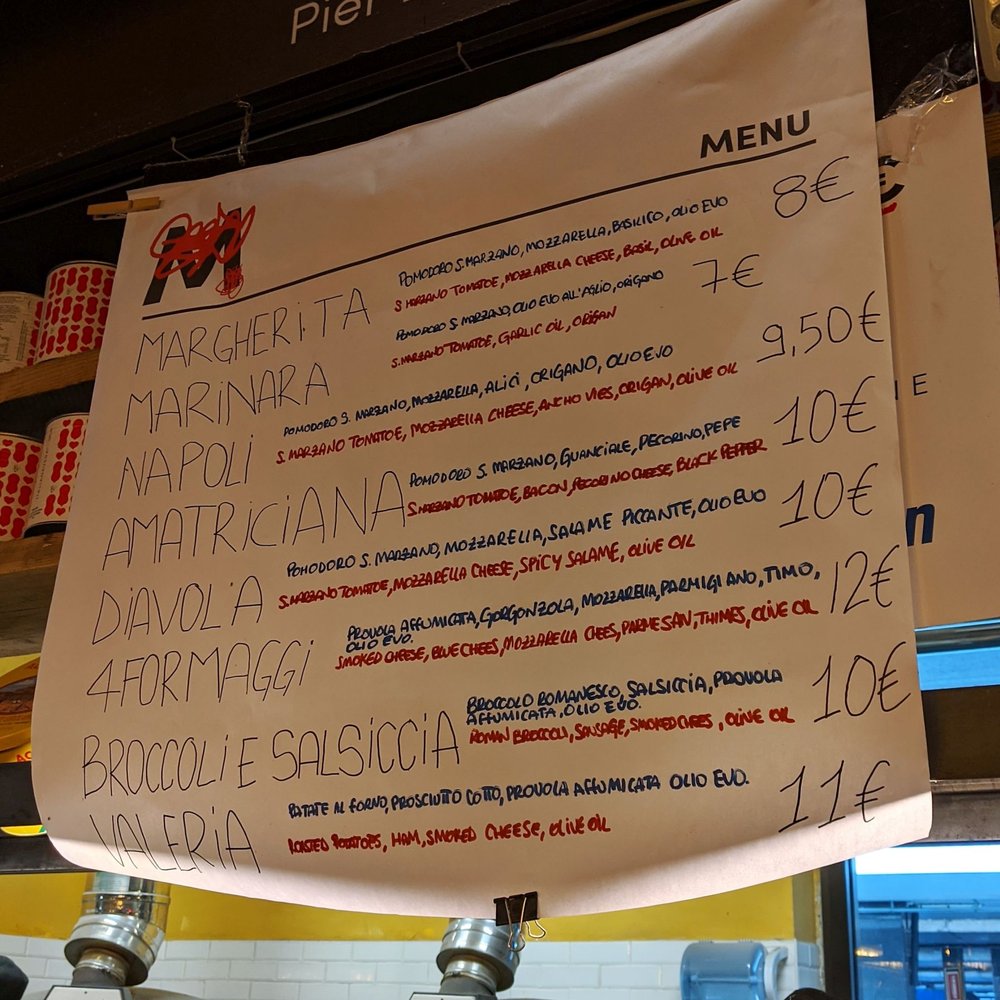 Pier
MENU
MARGHERITA
POMODORO S.MARZANO, MOZZARELLA, BASILICO, OLIO EVO
S MARZANO TOMATOE, MOZZARELLA CHEESE, BASIL, OLIVE OIL
8€
MARINARA
POMODORO S. MARZANO, OLIO EVO ALL'AGLIO, ORIGANO
S.MARZANO TOMATOE, GARLIC OIL, ORIGAN
7€
NAPOLI
POMODORO S. MARZANO, MOZZARELLA, ALICI, ORIGANO, OLIO EVO
S. MARZANO TOMATOE, MOZZARELLA CHEESE, ANCHO VIES, ORIGAN, OLIVE OIL
9,50€
AMATRICIANA
POMODORO S. MARZANO, GUANCIALE, PECORINO, PEPE
S.MARZANO TOMATOE, BACON, PECORINO CHEESE, BLACK PEPPER
10€
DIAVOLA
POMODORO S. MARZANO, MOZZARELLA, SALAME PICCANTE, OLIO EVO
S.MARZANO TOMATOE, MOZZARELLA CHEESE, SPICY SALAME, OLIVE OIL
10€
4FORMAGGI
PROVOLA AFFUMICATA, GORGONZOLA, MOZZARELLA, PARMIGIANO, TIMO,
OLIO EVO.
SMOKED CHEESE, BLUE CHEES, MOZZARELLA CHEES, PARMESAN, THIMES, OLIVE OIL
12€
BROCCOLI E SALSICCIA
BROCCOLO ROMANESCO, SALSICCIA, PROVOLA
AFFUMICATA, OLIO EVO.
ROMAN BROCCOLI, SAUSAGE, SMOKED CHEES, OLIVE OIL
10€
VALERIA
PATATE AL FORNO, PROSCIUTTO COTTO, PROVOLA AFFUMICATA OLIO EVO.
ROASTED POTATOES, HAM, SMOKED CHEESE, OLIVE OIL
11€